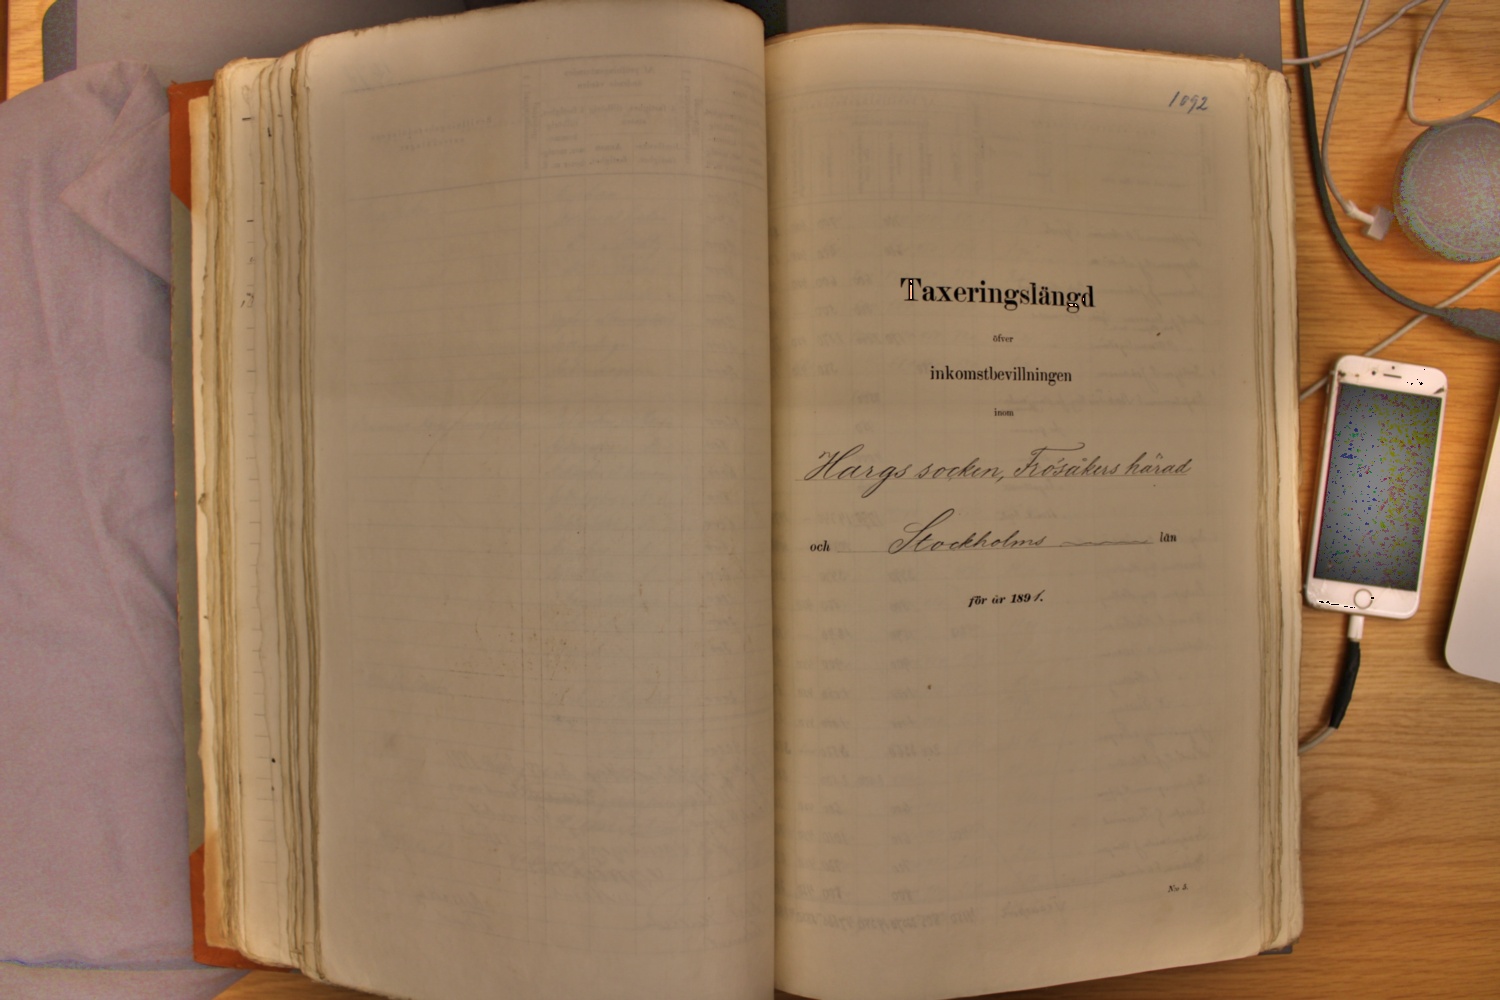 1092
Taxeringslängd
öfver
inkomstbevillningen
inom
Hargs socken, Frösåkers härad
och Stockholms län
för år 1891.
No 3.